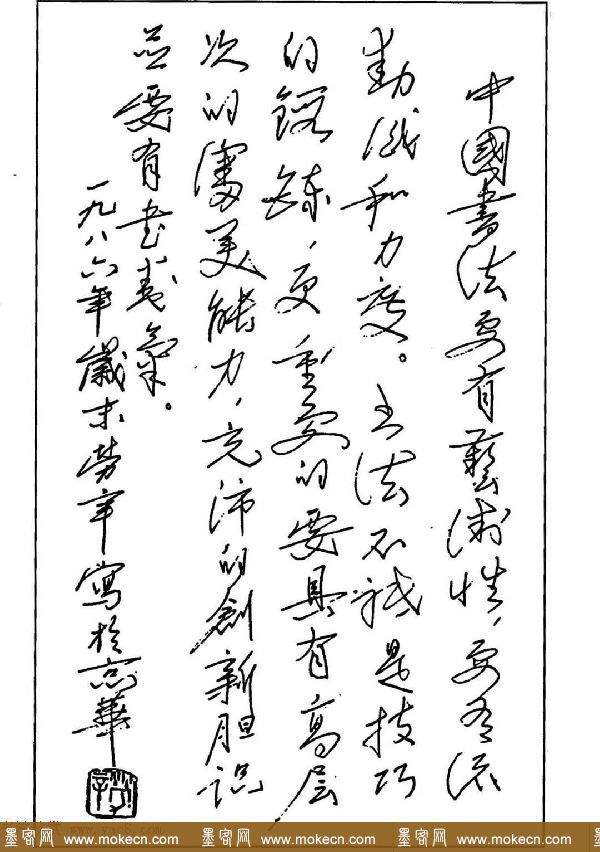 中國書法要有藝術性，要有流
動感和力度。书法不祇是技巧
的鍛鍊，更重要的要具有高层
次的審美能力，充沛的創新胆識
并要有书卷氣。
一九八六年歲末劳辛寫於京華
墨客网 www.mokecn.com 墨客网 www.mokecn.com 墨客网 www.mokecn.com